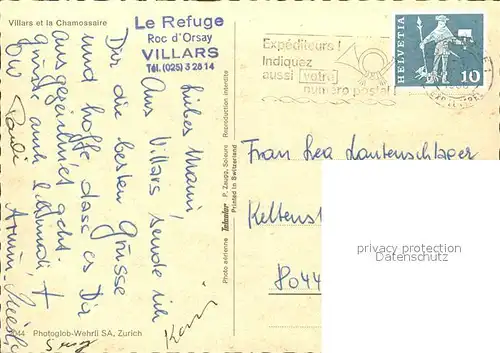 Villars et la Chamossaire
Le Refuge
Roc d'Orsay
VILLARS
Tél. (025) 3 28 14
Liebes Mami,
Aus Villars sende ich
Dir die besten Grüsse
und hoffe dass es Dir
ausgezeichnet geht.
Grüsse auch
Armin
Karin
Photo aérienne P. Zaugg, Soleure Reproduction interdite
Printed in Switzerland
Photoglob-Wehrli SA, Zurich
Expéditeurs !
Indiquez
aussi votre
numéro postal
HELVETIA
10
Frau Lea Lautenschlager
Keltenst
8044
privacy protection
Datenschutz